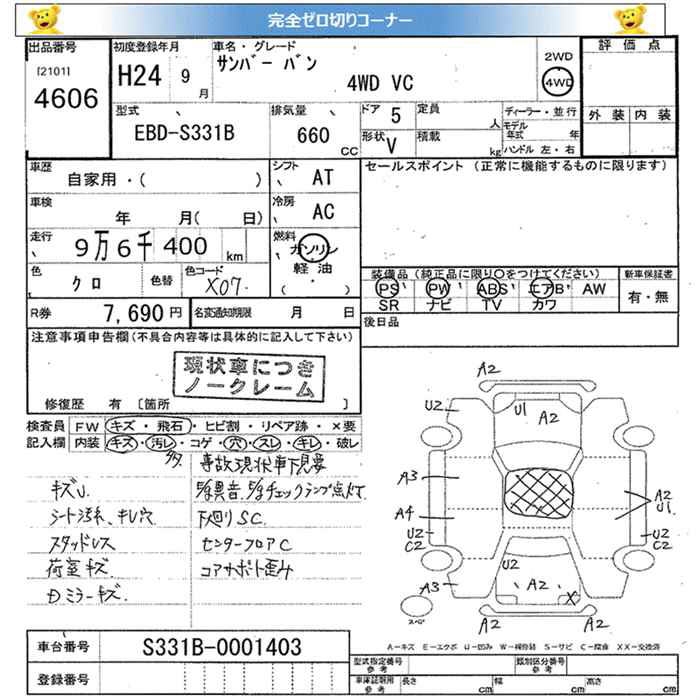 完全ゼロ切りコーナー
出品番号
[2101]
4606
初度登録年月
H24 9月
車名・グレード
サンバー バン
4WD VC
2WD
4WD
評価点
外装 内装
型式
EBD-S331B
排気量
660 CC
ドア 5
形状 V
定員 人
積載 kg
ディーラー・並行
モデル年式 年
ハンドル 左・右
車歴
自家用・( )
シフト
AT
セールスポイント (正常に機能するものに限ります)
車検
年 月( 日)
冷房
AC
走行
9万6千400 km
燃料
ガソリン
軽油
( ・ )
色
クロ
色替
色コード
X07
装備品 (純正品に限り〇をつけてください)
PS PW ABS エアB AW
SR ナビ TV カワ
新車保証書
有・無
R券
7,690円
名変通知期限
月 日
後日品
注意事項申告欄(不具合内容等は具体的に記入して下さい)
現状車につき
ノークレーム
修復歴 有 [箇所 ]
検査員
記入欄
FW キズ・飛石・ヒビ割・リペア跡・×要
内装 キズ・汚レ・コゲ・穴・スレ・キレ・破レ
事故現状車下見要
キズU.
シート汚れ、キレ穴
スタッドレス
荷室キズ.
Dミラーキズ.
E/g異音、E/gチェックランプ点灯.
下廻りSC.
センターフロアC
コアサポート歪み
A2
U2
U1
A2
A3
A4
U2
C2
A2
U1
U2
C2
U2
A2
X
A3
A2
A2
スペア
A－キズ E－エクボ U－凹み W－補修跡 S－サビ C－腐食 XX－交換済
車台番号
S331B-0001403
登録番号
型式指定番号
参考
類別区分番号
参考
車庫証明用
参考
長さ cm
幅 cm
高さ cm